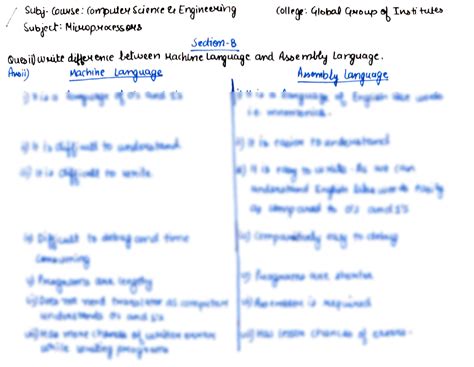 Subj. Course: Computer Science & Engineering College: Global Group of Institutes
Subject: Microprocessors
Section-B
Ques ii) Write difference between Machine Language and Assembly Language.
Ans ii) Machine Language Assembly Language
i) It is a language of 0's and 1's i) It is a language of English like words
i.e. mnemonics.
ii) It is difficult to understand ii) It is easier to understand
iii) It is difficult to write iii) It is easy to write as we can
understand English like words easily
as compared to 0's and 1's
iv) Difficult to debug and time iv) Comparatively easy to debug
consuming
v) Programs are lengthy v) Programs are shorter
vi) Does not need translator as computer vi) Assembler is required
understands 0's and 1's
vii) Has more chances of error vii) Has lesser chances of error
while writing programs